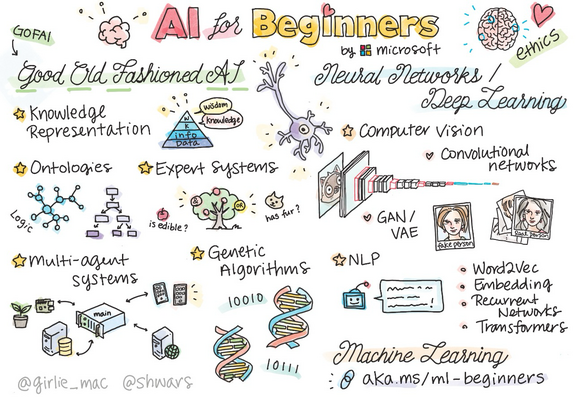 AI for Beginners
by microsoft
GOFAI
ethics
Good Old Fashioned AI
Knowledge
Representation
wisdom
knowledge
W
K
info
Data
Ontologies
Logic
Expert Systems
is edible?
OR
has fur?
Multi-agent
systems
main
Genetic
Algorithms
10010
10111
Neural Networks /
Deep Learning
Computer Vision
Convolutional
networks
GAN/
VAE
fake person
real person
NLP
Word2Vec
Embedding
Recurrent
Networks
Transformers
Machine Learning
aka.ms/ml-beginners
@girlie_mac @shwars